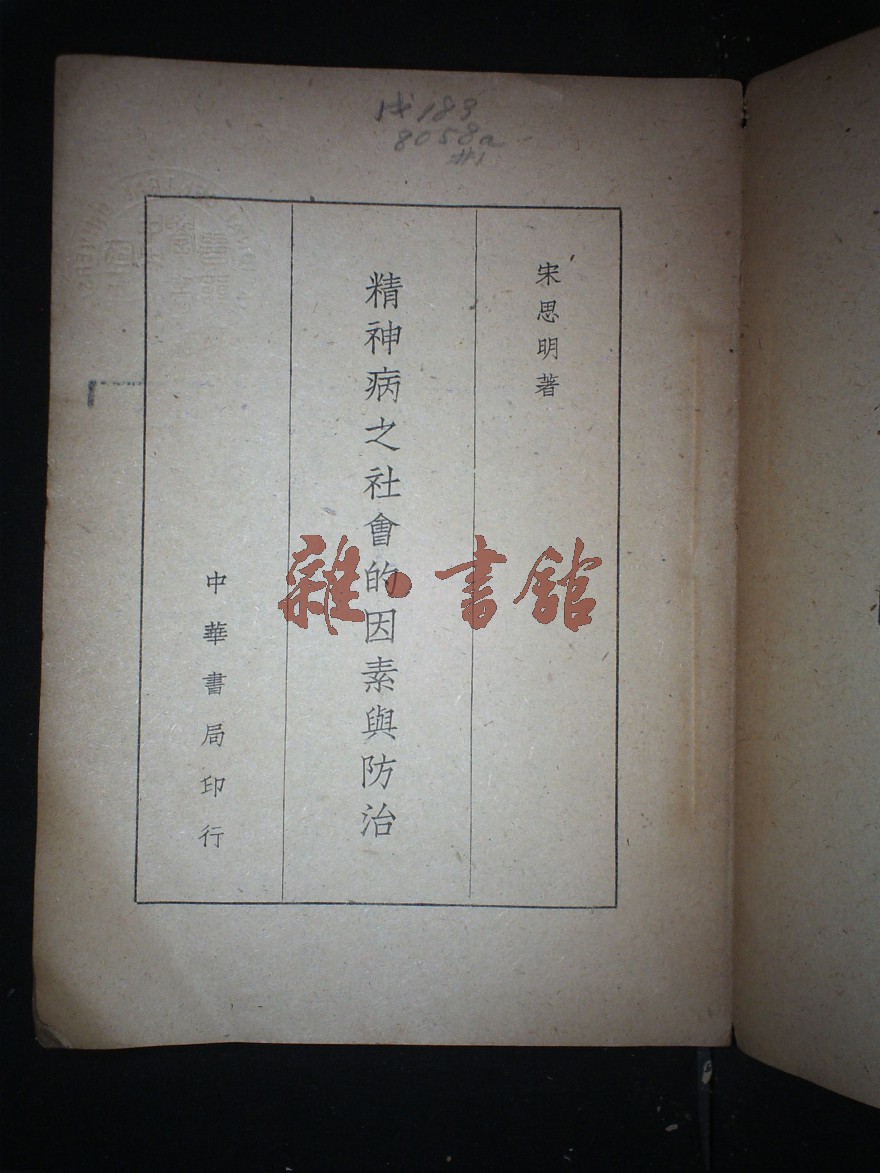 183
8058a
#1
宋思明著
精神病之社會的因素與防治
中華書局印行
雜·書館